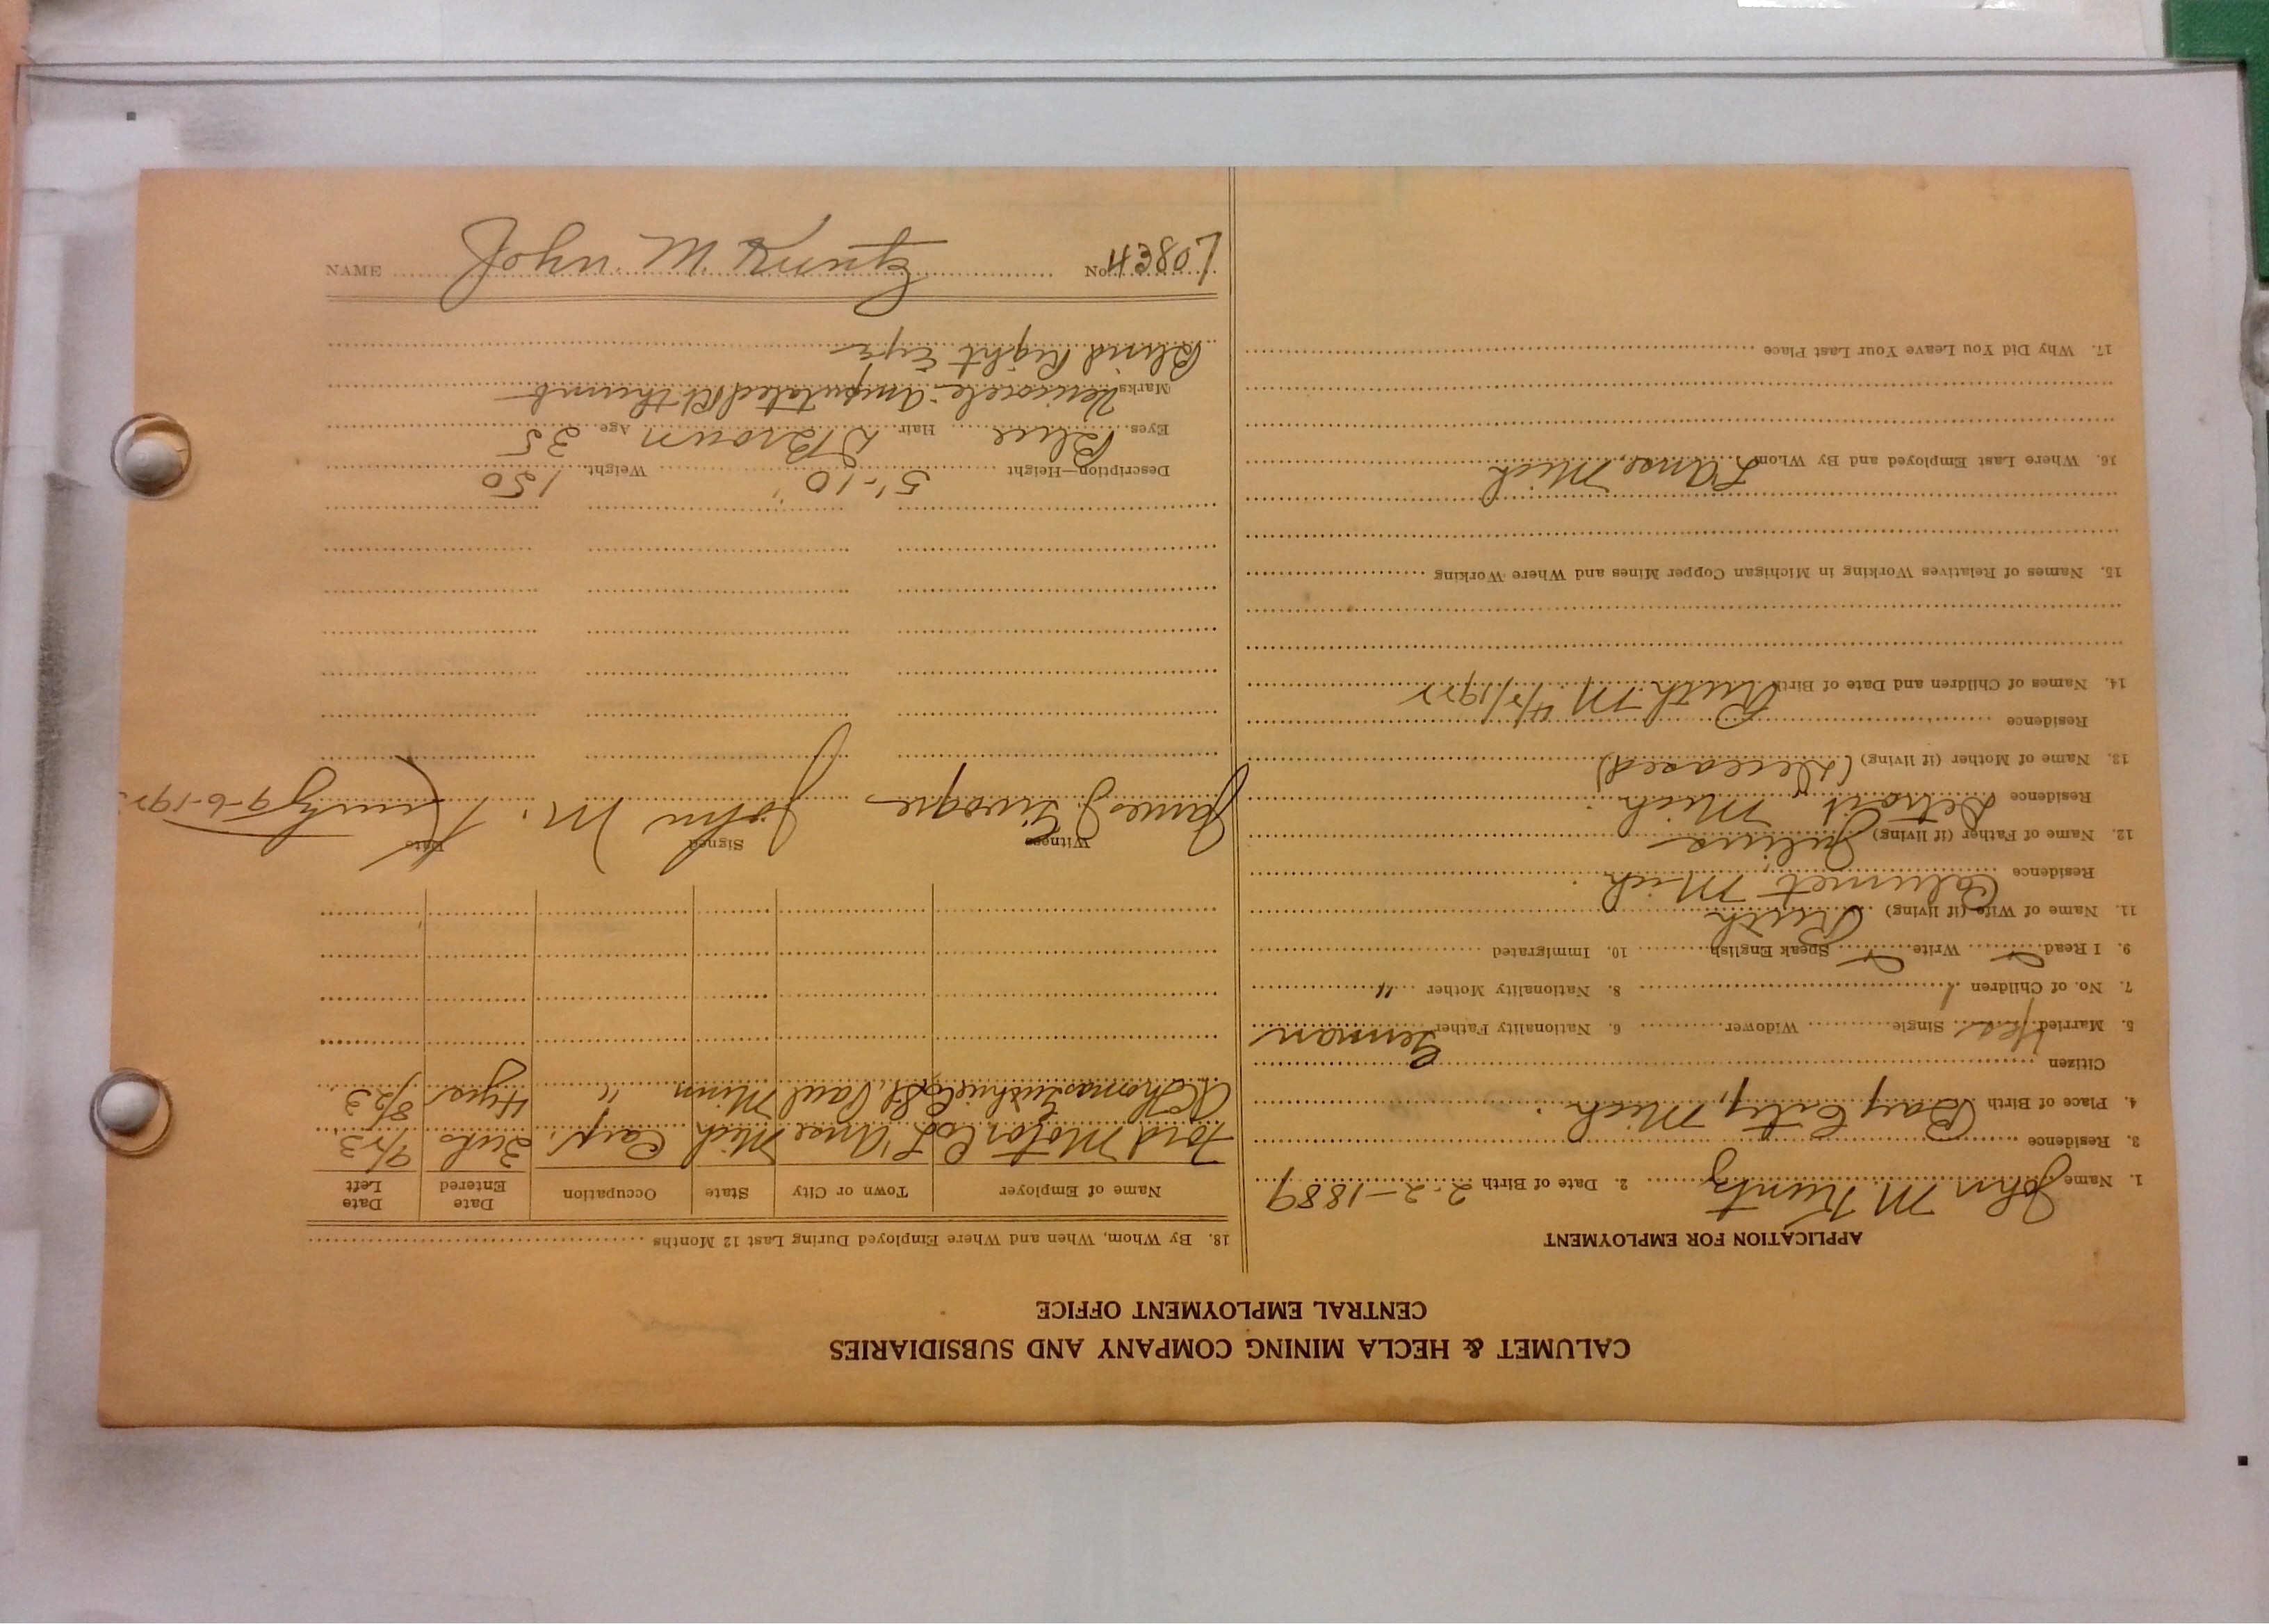 CALUMET & HECLA MINING COMPANY AND SUBSIDIARIES
CENTRAL EMPLOYMENT OFFICE
APPLICATION FOR EMPLOYMENT
1. Name John M Kuntz 2. Date of Birth 2-2-1889
3. Residence
4. Place of Birth Bay City, Mich.
Citizen
5. Married Yes Single Widower 6. Nationality Father German
7. No. of Children 1 8. Nationality Mother "
9. I Read Write Speak English 10. Immigrated
11. Name of Wife (if living) Ruth
Residence Calumet, Mich.
12. Name of Father (if living) Julius
Residence Detroit Mich.
13. Name of Mother (if living) (Deceased)
Residence
14. Names of Children and Date of Birth Ruth M
15. Names of Relatives Working in Michigan Copper Mines and Where Working
16. Where Last Employed and By Whom L'Anse, Mich
17. Why Did You Leave Your Last Place
18. By Whom, When and Where Employed During Last 12 Months
Name of Employer Town or City State Occupation Date Entered Date Left
Ford Motor Co L'Anse Mich Carp.
Thomas St. Paul Minn " 4 yrs 8/23
Witness Signed Date
James J. John M. Kuntz
Description—Height 5'-10" Weight 150
Eyes Blue Hair D Brown Age 35
Marks amputated R thumb
Blind Right Eye
NAME John. M. Kuntz No. 43807